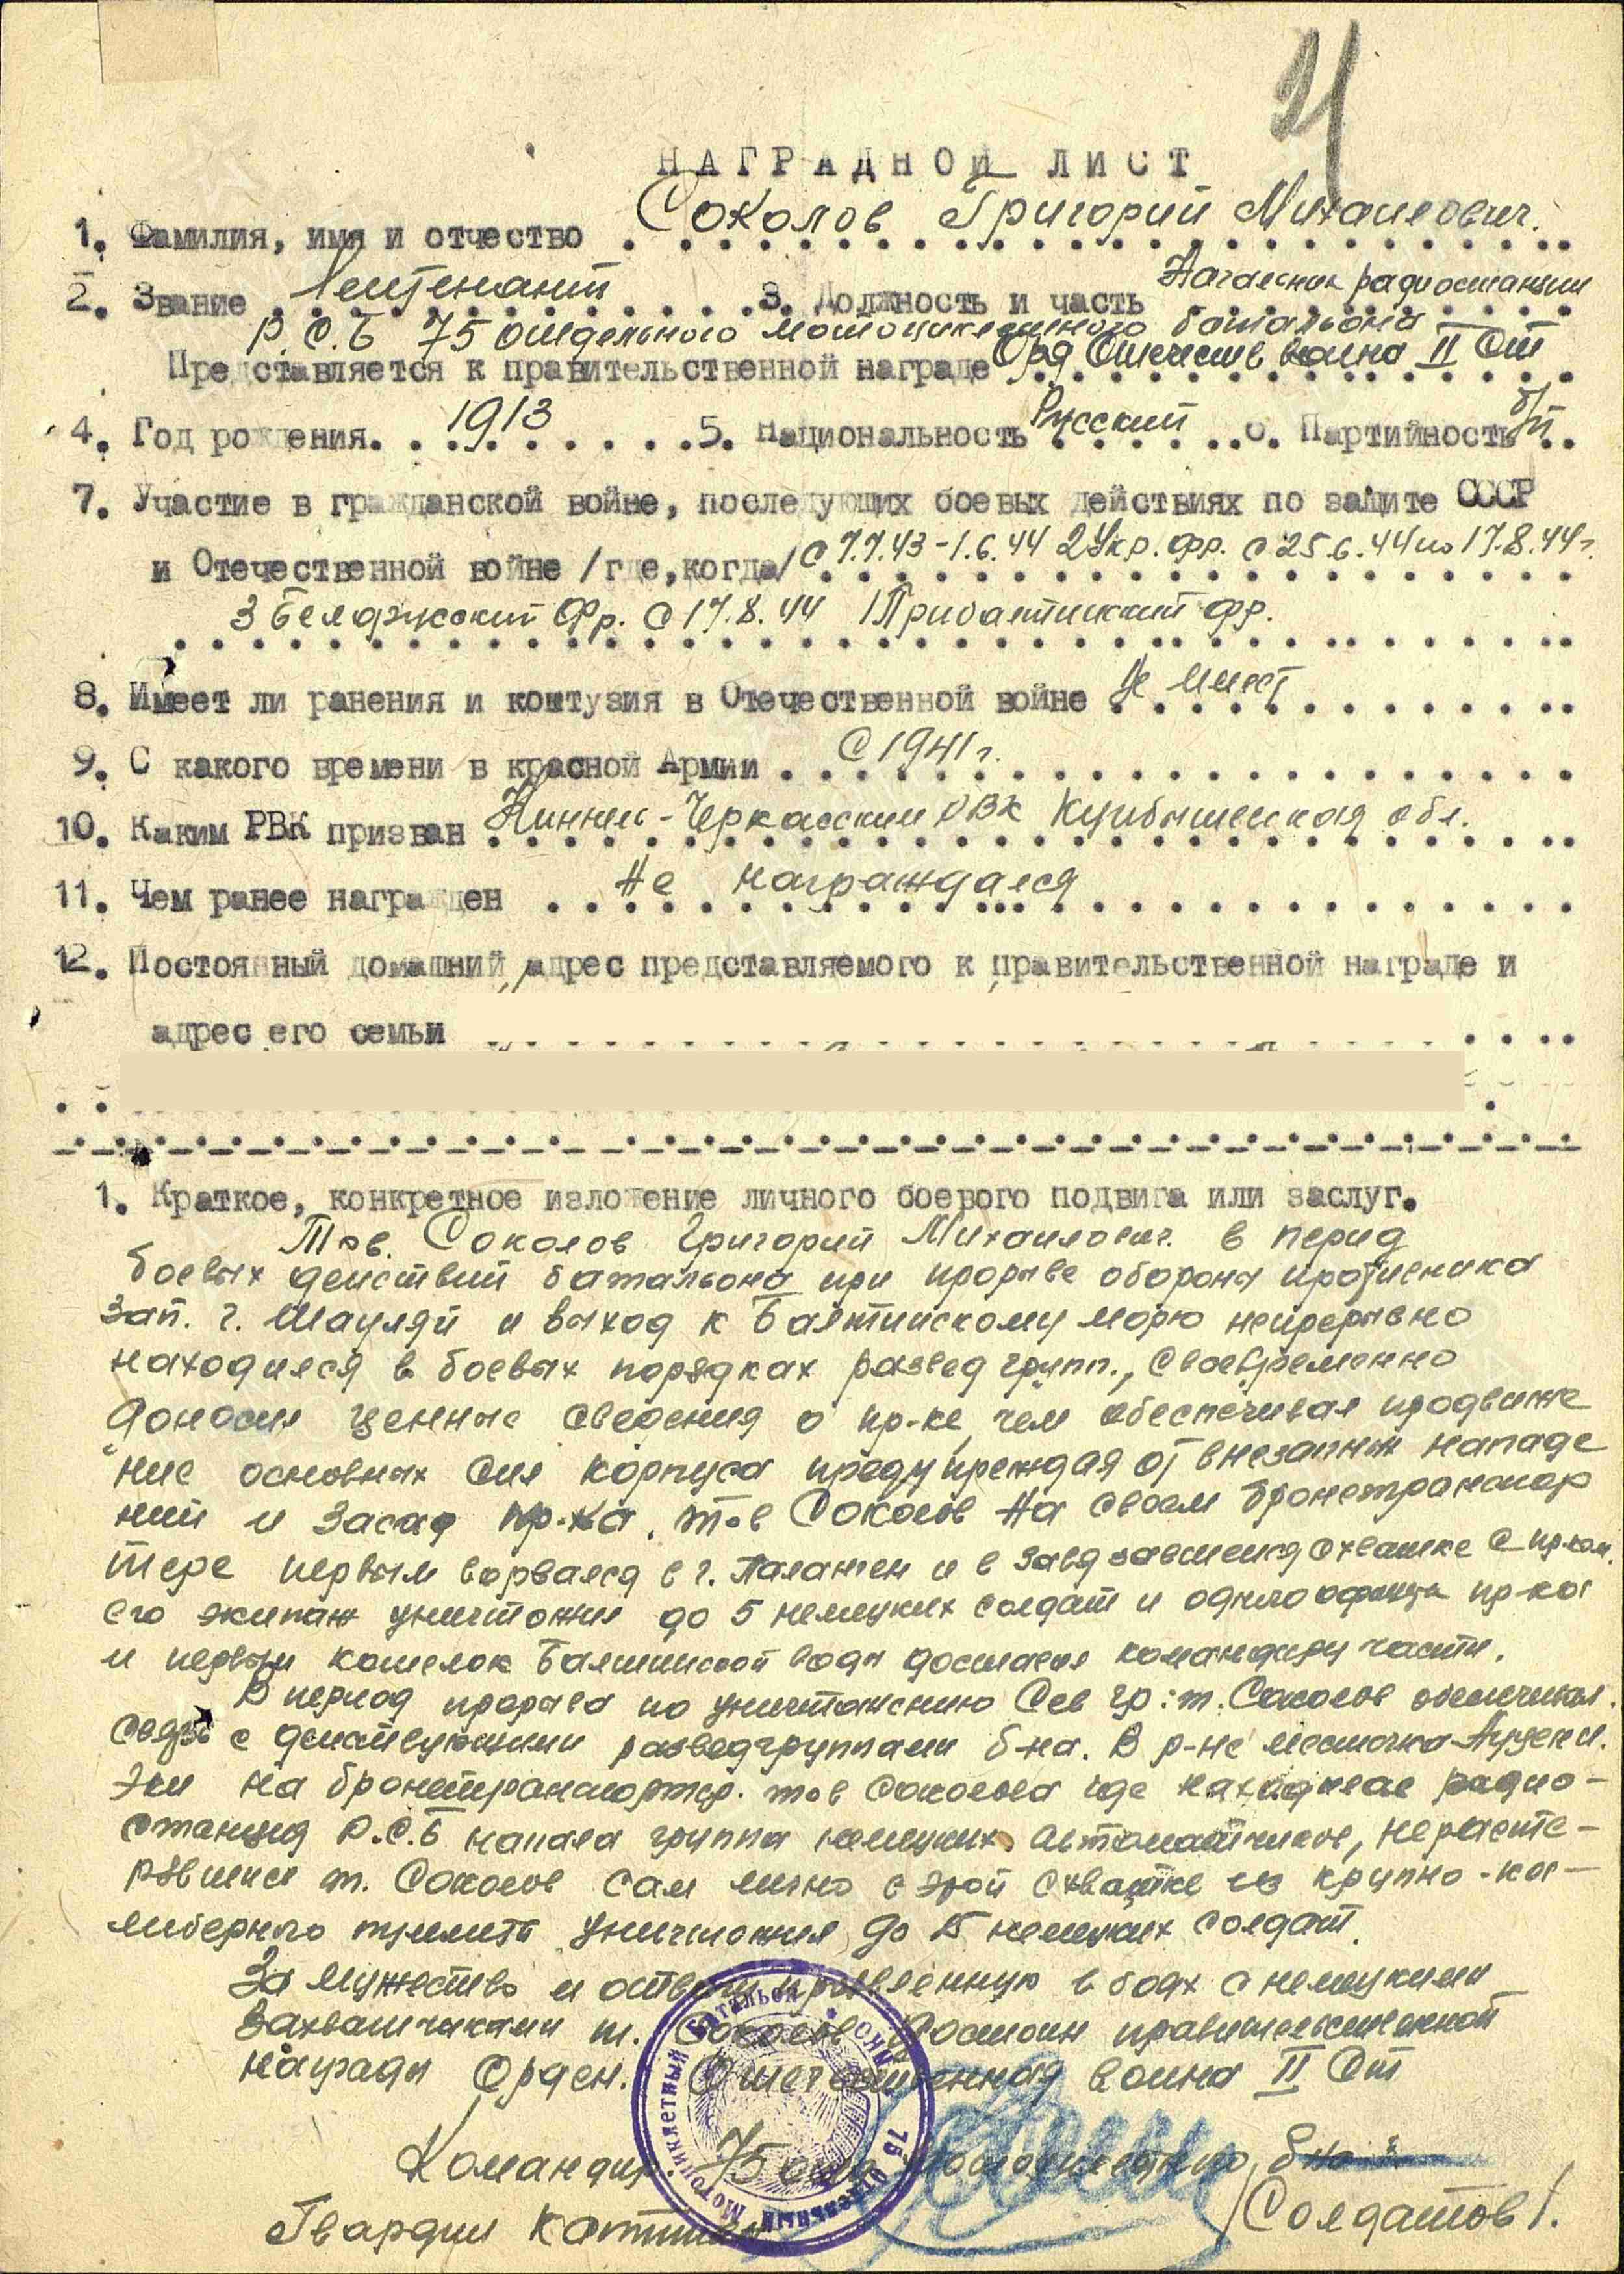 21
НАГРАДНОЙ ЛИСТ
1. Фамилия, имя и отчество Соколов Григорий Михайлович.
2. Звание Лейтенант 3. Должность и часть Начальник радиостанции
Р.С.Б 75 отдельного мотоциклетного батальона
Представляется к правительственной награде Орд Отечеств война II Ст
4. Год рождения 1913 5. Национальность Русский 6. Партийность б/п
7. Участие в гражданской войне, последующих боевых действиях по защите СССР
и Отечественной войне /где, когда/ с 7.7.43-1.6.44 2 Укр. фр. с 25.6.44 по 17.8.44г.
3 Белорусский Фр. с 17.8.44 1 Прибалтийский фр.
8. Имеет ли ранения и контузия в Отечественной войне Не имеет
9. С какого времени в красной Армии с 1941г.
10. Каким РВК призван Кинель-Черкасским РВК Куйбышевская обл.
11. Чем ранее награжден Не награждался
12. Постоянный домашний адрес представляемого к правительственной награде и
адрес его семьи
1. Краткое, конкретное изложение личного боевого подвига или заслуг.
Тов. Соколов Григорий Михайлович. в период
боевых действий батальона при прорыве обороны противника
Зап. г. Шауляй и выход к Балтийскому морю непрерывно
находился в боевых порядках развед групп., своевременно
доносил ценные сведения о пр-ке, чем обеспечивал продвиже
ние основных сил корпуса предупреждая от внезапных нападе
ний и засад пр-ка. тов Соколов На своем бронетранспор
тере первым ворвался в г. Паланген и в завязавшейся схватке с пр-ком.
его экипаж уничтожил до 5 немецких солдат и одного офицера пр-ка
и первым котелок Балтийской воды доставил командиру части.
В период прорыва по уничтожению Сев гр: т. Соколов обеспечивал
связь с действующими разведгруппами б-на. В р-не местечка
на бронетранспортер. тов Соколова где находилась радио-
станция Р.С.Б напала группа немецких автоматчиков, нерасте-
рявшись т. Соколов сам лично в этой схватке из крупно-ка-
либерного пулимета уничтожил до 15 немецких солдат.
За мужество и отвагу проявленную в боях с немецкими
захватчиками т. Соколов Достоин правительственной
награды Орден. Отечественная война II Ст
Командир 75 отд мотоциклетного б-на
Гвардии Капитан /Солдатов/.
75 Отдельный Мотоциклетный Батальон * НКО